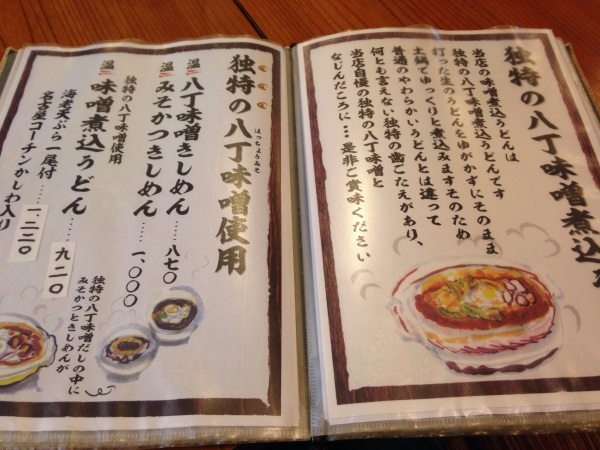 独特の八丁味噌煮込み
当店の味噌煮込うどんは
独特の八丁味噌煮込うどんです
打った生のうどんをゆがかずにそのまま
土鍋でゆっくりと煮込みますそのため
普通のやわらかいうどんとは違って
何とも言えない独特の歯ごたえがあり、
当店自慢の独特の八丁味噌と
なじんだころに…是非ご賞味ください
独特の八丁味噌使用
はっちょうみそ
温 八丁味噌きしめん……八七〇
温 みそかつきしめん……一、〇〇〇
独特の八丁味噌だしの中に
みそかつときしめんが
独特の八丁味噌使用
温 味噌煮込うどん……九二〇
海老天ぷら一尾付……一、二二〇
名古屋コーチンかしわ入り